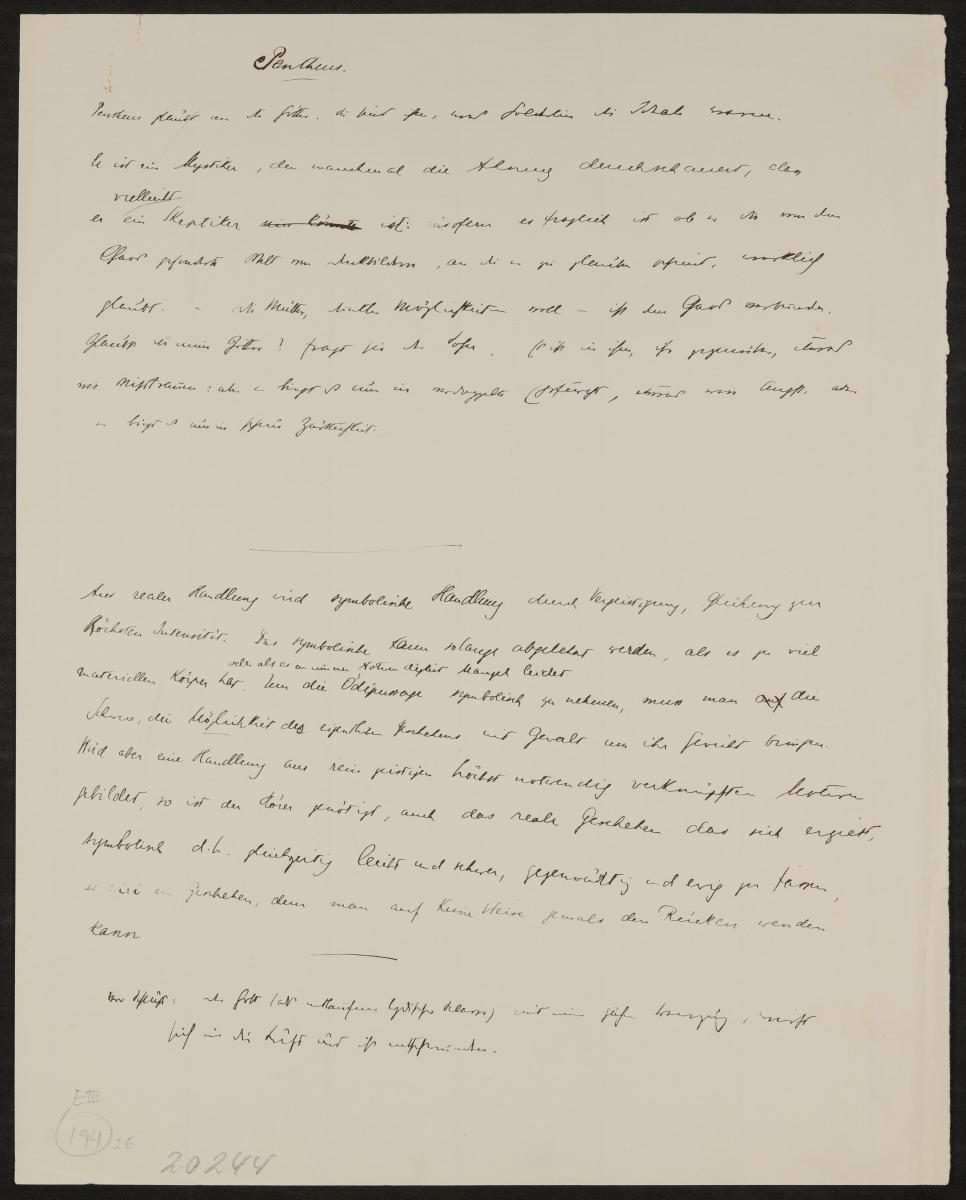 Pentheus.
Pentheus glaubt an die Götter. die sind ihm, was die Ideale waren.
Er ist ein Mystiker, den manchmal die Ahnung durchschauert, dass
vielleicht
er ein Skeptiker sein könnte ist: insofern es fraglich ist ob er die von dem
Chaos gesonderte Welt von, an die er zu glauben scheint, wirklich
glaubt. – die Mutter, dunkler Möglichkeiten voll – ist dem Chaos verbunden.
Glaubst du an meine Götter? fragt sie der Sohn. Es ist in ihm, ihr gegenüber, etwas
wie Misstrauen: aber er birgt es nur in verdoppelte Ehrfurcht, etwas wie Angst. aber
er birgt es nur in Zärtlichkeit.
Aus realer Handlung wird symbolische Handlung durch Vergeistigung, zur
höchsten Intensität. Das symbolische kann solange abgelehnt werden, als es zu viel
oder als es an innerer Notwendigkeit Mangel leidet
materiellen Körper hat. Um die Ödipussage symbolisch zu nehmen, muss man auf die
Schwere, die Möglichkeit des eigentlichen Geschehens mit Gewalt um ihr Gewicht bringen.
Wird aber eine Handlung aus rein geistigen höchst notwendig verknüpften Motiven
gebildet, so ist der Hörer genötigt, auch das reale Geschehen das sich ergiebt,
symbolisch d.h. gleichzeitig leicht und schwer, gegenwärtig und ewig zu fassen,
es wird ein Geschehen, dem man auf keine Weise jemals den Rücken wenden
kann
der Gott (als Sclave) mit einer, wirft
sich in die Luft und ist verschwunden.
E III
194 26
20244